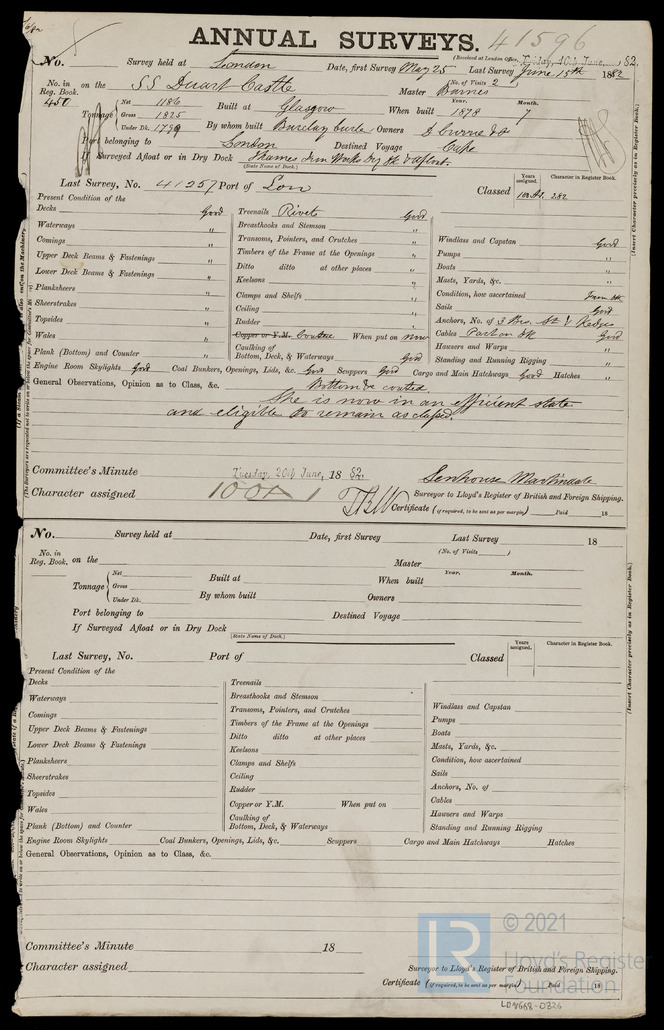 ANNUAL SURVEYS. 41596
(Received at London Office, Tuesday, 20th June, 82.
No. Survey held at London Date, first Survey May 25 Last Survey June 15th 1882
(No. of Visits 2)
No. in Reg. Book. 450 on the SS Duart Castle Master Barnes
Tonnage Net 1186 Gross 1825 Under Dk. 1799 Built at Glasgow When built Year. 1878 Month. 7
By whom built Barclay Curle Owners D Currie & Co
Port belonging to London Destined Voyage Cape
If Surveyed Afloat or in Dry Dock Thames Iron Works Dry Dk & afloat
(State Name of Dock.)
Last Survey, No. 41257 Port of Lon Classed Years assigned. 100A1. Character in Register Book. 2.82
(Insert Character precisely as in Register Book.)
Present Condition of the
Decks Good
Waterways "
Comings "
Upper Deck Beams & Fastenings "
Lower Deck Beams & Fastenings "
Planksheers "
Sheerstrakes "
Topsides "
Wales "
Plank (Bottom) and Counter "
Treenails Rivets Good
Breasthooks and Stemson "
Transoms, Pointers, and Crutches "
Timbers of the Frame at the Openings "
Ditto ditto at other places "
Keelsons "
Clamps and Shelfs "
Ceiling "
Rudder "
Copper or Y.M. Coated When put on now
Caulking of Bottom, Deck, & Waterways Good
Windlass and Capstan Good
Pumps "
Boats "
Masts, Yards, &c. "
Condition, how ascertained from dk
Sails Good
Anchors, No. of 3 Brs. St & Kedges
Cables Part on dk Good
Hawsers and Warps "
Standing and Running Rigging "
Engine Room Skylights Good Coal Bunkers, Openings, Lids, &c. Good Scuppers Good Cargo and Main Hatchways Good Hatches "
General Observations, Opinion as to Class, &c. Bottom coated.
She is now in an efficient state
and eligible to remain as classed.
Committee's Minute Tuesday, 20th June, 1882.
Character assigned 100A1
Senhouse Martindale
Surveyor to Lloyd's Register of British and Foreign Shipping.
Certificate (if required, to be sent as per margin) Paid 18
No. Survey held at Date, first Survey Last Survey 18
(No. of Visits )
No. in Reg. Book. on the Master
Tonnage Net Gross Under Dk. Built at When built Year. Month.
By whom built Owners
Port belonging to Destined Voyage
If Surveyed Afloat or in Dry Dock
(State Name of Dock.)
Last Survey, No. Port of Classed Years assigned. Character in Register Book.
(Insert Character precisely as in Register Book.)
Present Condition of the
Decks
Waterways
Comings
Upper Deck Beams & Fastenings
Lower Deck Beams & Fastenings
Planksheers
Sheerstrakes
Topsides
Wales
Plank (Bottom) and Counter
Treenails
Breasthooks and Stemson
Transoms, Pointers, and Crutches
Timbers of the Frame at the Openings
Ditto ditto at other places
Keelsons
Clamps and Shelfs
Ceiling
Rudder
Copper or Y.M. When put on
Caulking of Bottom, Deck, & Waterways
Windlass and Capstan
Pumps
Boats
Masts, Yards, &c.
Condition, how ascertained
Sails
Anchors, No. of
Cables
Hawsers and Warps
Standing and Running Rigging
Engine Room Skylights Coal Bunkers, Openings, Lids, &c. Scuppers Cargo and Main Hatchways Hatches
General Observations, Opinion as to Class, &c.
Committee's Minute 18
Character assigned
Surveyor to Lloyd's Register of British and Foreign Shipping.
Certificate (if required, to be sent as per margin) Paid 18
LR © 2021
Lloyd's Register
Foundation